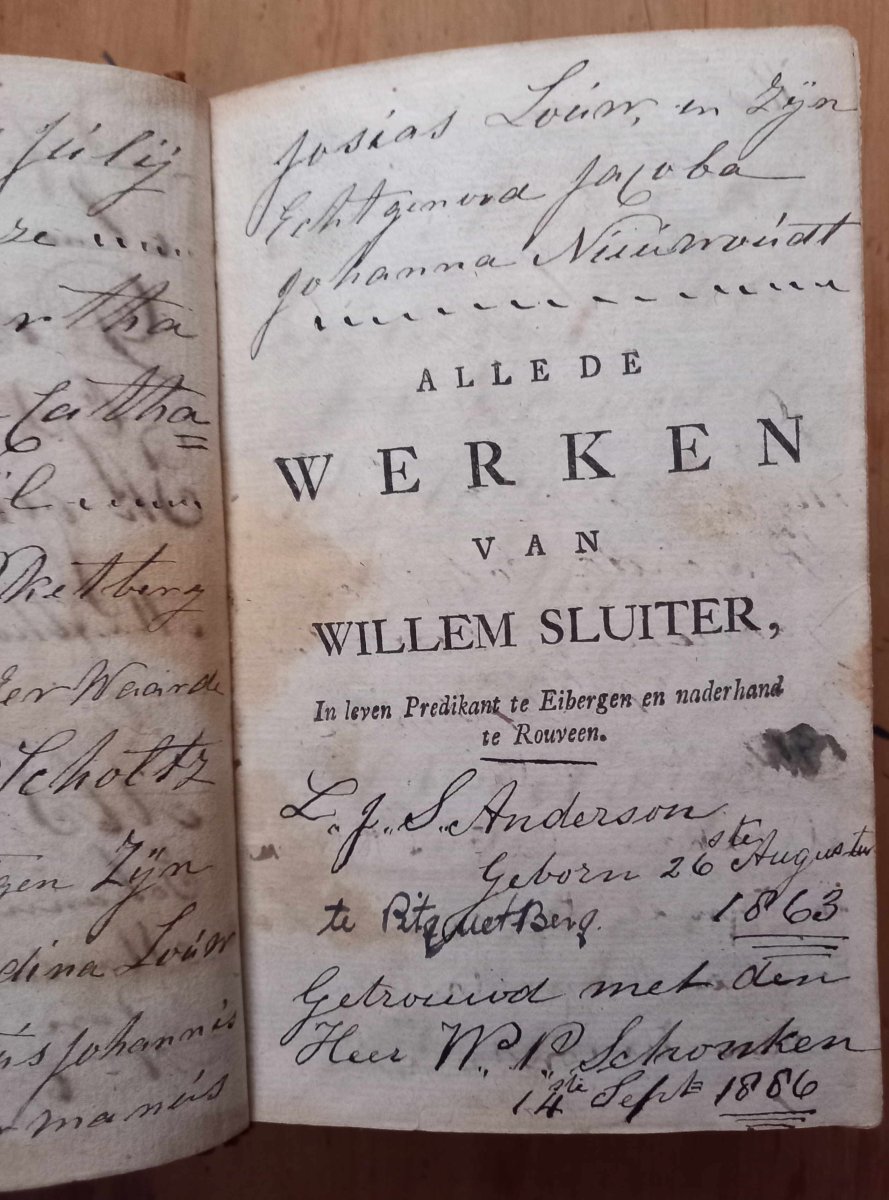 Júlij
ze
rtha
Catha
l
Pketberg
er Waarde
Scholtz
gen Zÿn
dina Loúw
ús Johannis
manús
Josias Loúw, en Zÿn
Echtgenood Jacoba
Johanna Nieúwoúdt
ALLE DE
WERKEN
VAN
WILLEM SLUITER,
In leven Predikant te Eibergen en naderhand
te Rouveen.
L. J. S. Anderson
Geborn 26ste Augustus
te PitquetBerg. 1863
Getrouwd met den
Heer W. P. Schonken
14ste Sept 1886